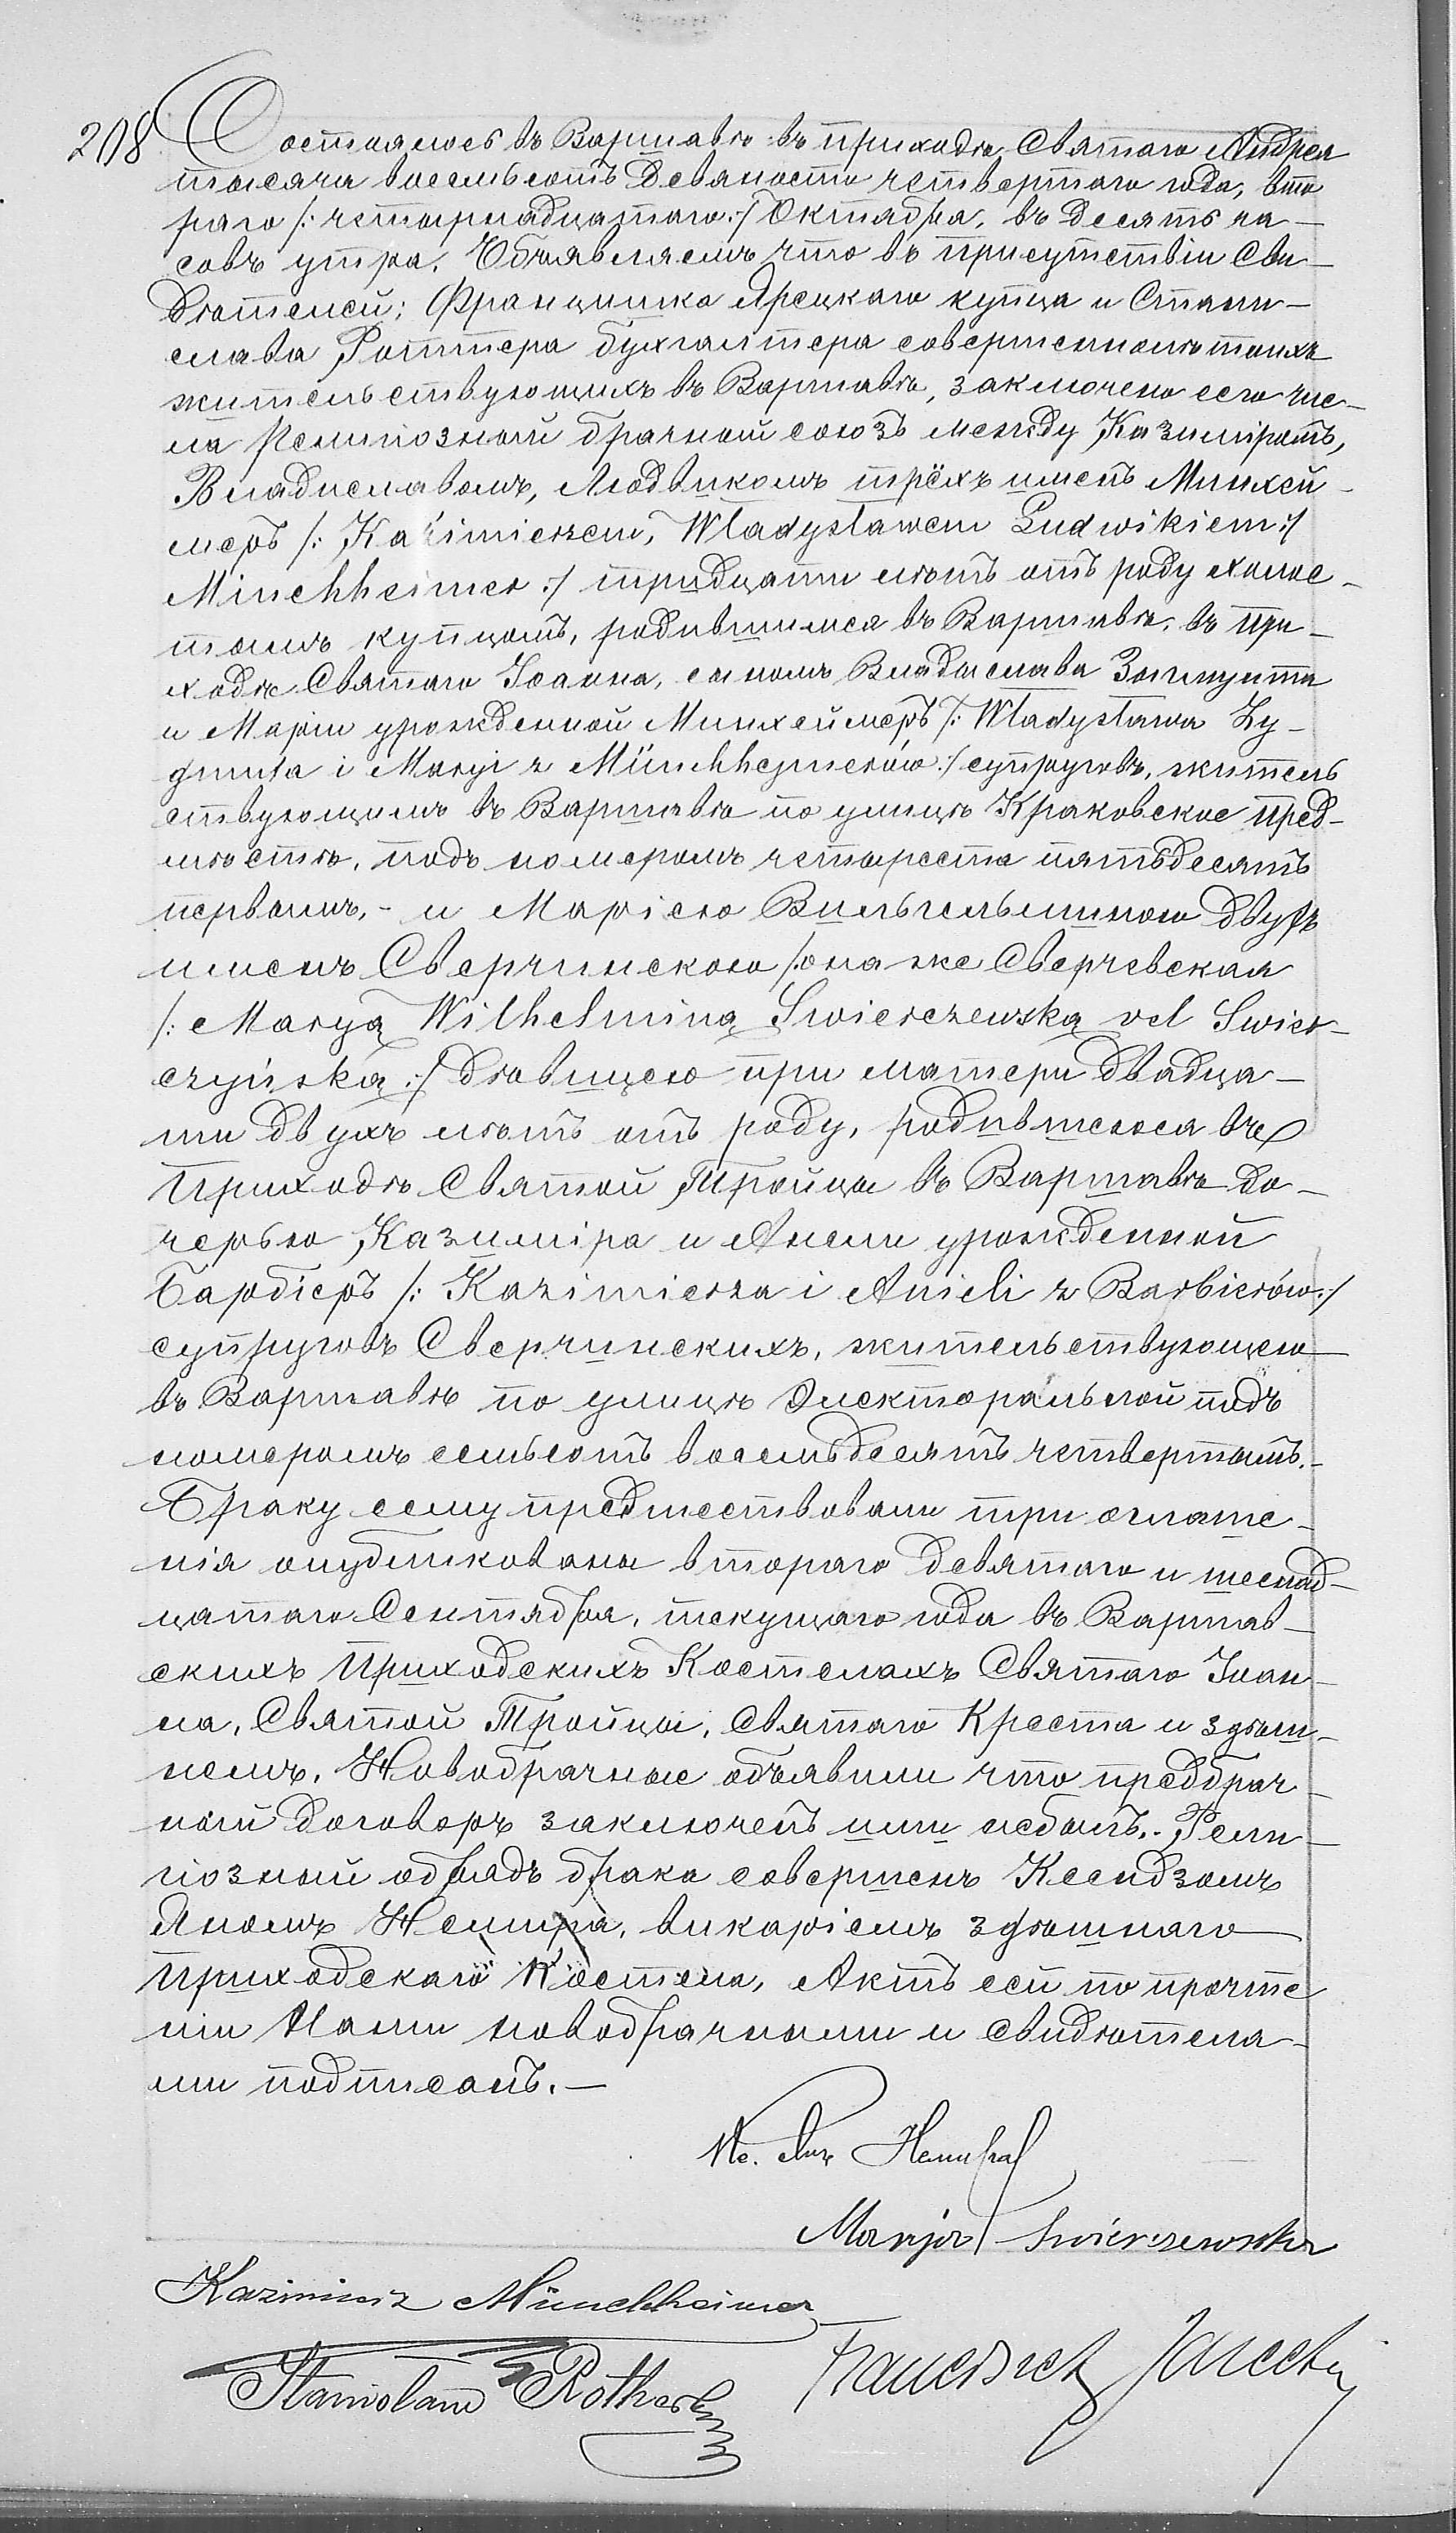 208 Состоялось въ Варшавѣ въ приходѣ Святаго Андрея
тысяча восемьсотъ девяносто четвертаго года, вто
раго /: четырнадцатаго :/ Октября, въ десять ча-
совъ утра. Объявляемъ что въ присутствіи Сви-
дѣтелей: Францишка Ярецкаго купца и Стани-
слава Роттера бухгалтера совершеннолѣтнихъ
жительствующихъ въ Варшавѣ, заключенъ сего чис-
ла Религіозный брачный союзъ между Казиміромъ,
Владиславомъ, Людвикомъ трёхъ именъ Минхей-
меръ /: Kazimierzem, Władysławem Ludwikiem :/
Münchheimer :/ тридцати лѣтъ отъ роду холос-
тымъ купцомъ, родившимся въ Варшавѣ, въ при-
ходѣ Святаго Іоанна, сыномъ Владислава Зигмунта
и Маріи урожденной Минхеймеръ /: Władysława Zy-
gmunta i Maryi z Münchhejmerów :/ супруговъ, житель
ствующимъ въ Варшавѣ по улицѣ Краковское пред-
мѣстѣ, подъ номеромъ четыреста пятьдесятъ
первымъ, - и Маріею Вильгельминою двухъ
именъ Сверчинскою /: она же Сверчевская
/: Maryą Wilhelminą Swierczewską vel Swier-
czyńską :/ дѣвицею при матери двадца-
ти двухъ лѣтъ отъ роду, родившеюся въ
Приходѣ Святой Тройцы въ Варшавѣ до-
черью Казиміра и Анели урожденной
Барбіеръ /: Kazimierza i Anieli z Barbierów :/
супруговъ Сверчинскихъ, жительствующею
въ Варшавѣ по улицѣ Электоральной подъ
номеромъ семьсотъ восемьдесятъ четвертымъ. -
Браку сему предшествовали три оглаше-
нія опубликованы втораго девятаго и шеснад-
цатаго Сентября, текущаго года въ Варшав-
скихъ Приходскихъ Костелахъ Святаго Іоан-
на, Святой Тройцы, Святаго Креста и здѣш-
немъ. Новобрачные объявили что предбрач-
ный договоръ заключенъ ими небылъ. - Рели-
гіозный обрядъ брака совершенъ Ксендзомъ
Яномъ Немира, викаріемъ здѣшнаго
Приходскаго Костела, Актъ сей по прочте
ніи Нами новобрачными и свидѣтеля-
ми подписанъ. -
Кс. Янъ Немира
Marja Swierczewska
Kazimierz Münchheimer
Stanisław Rother
Franciszek Jarecki